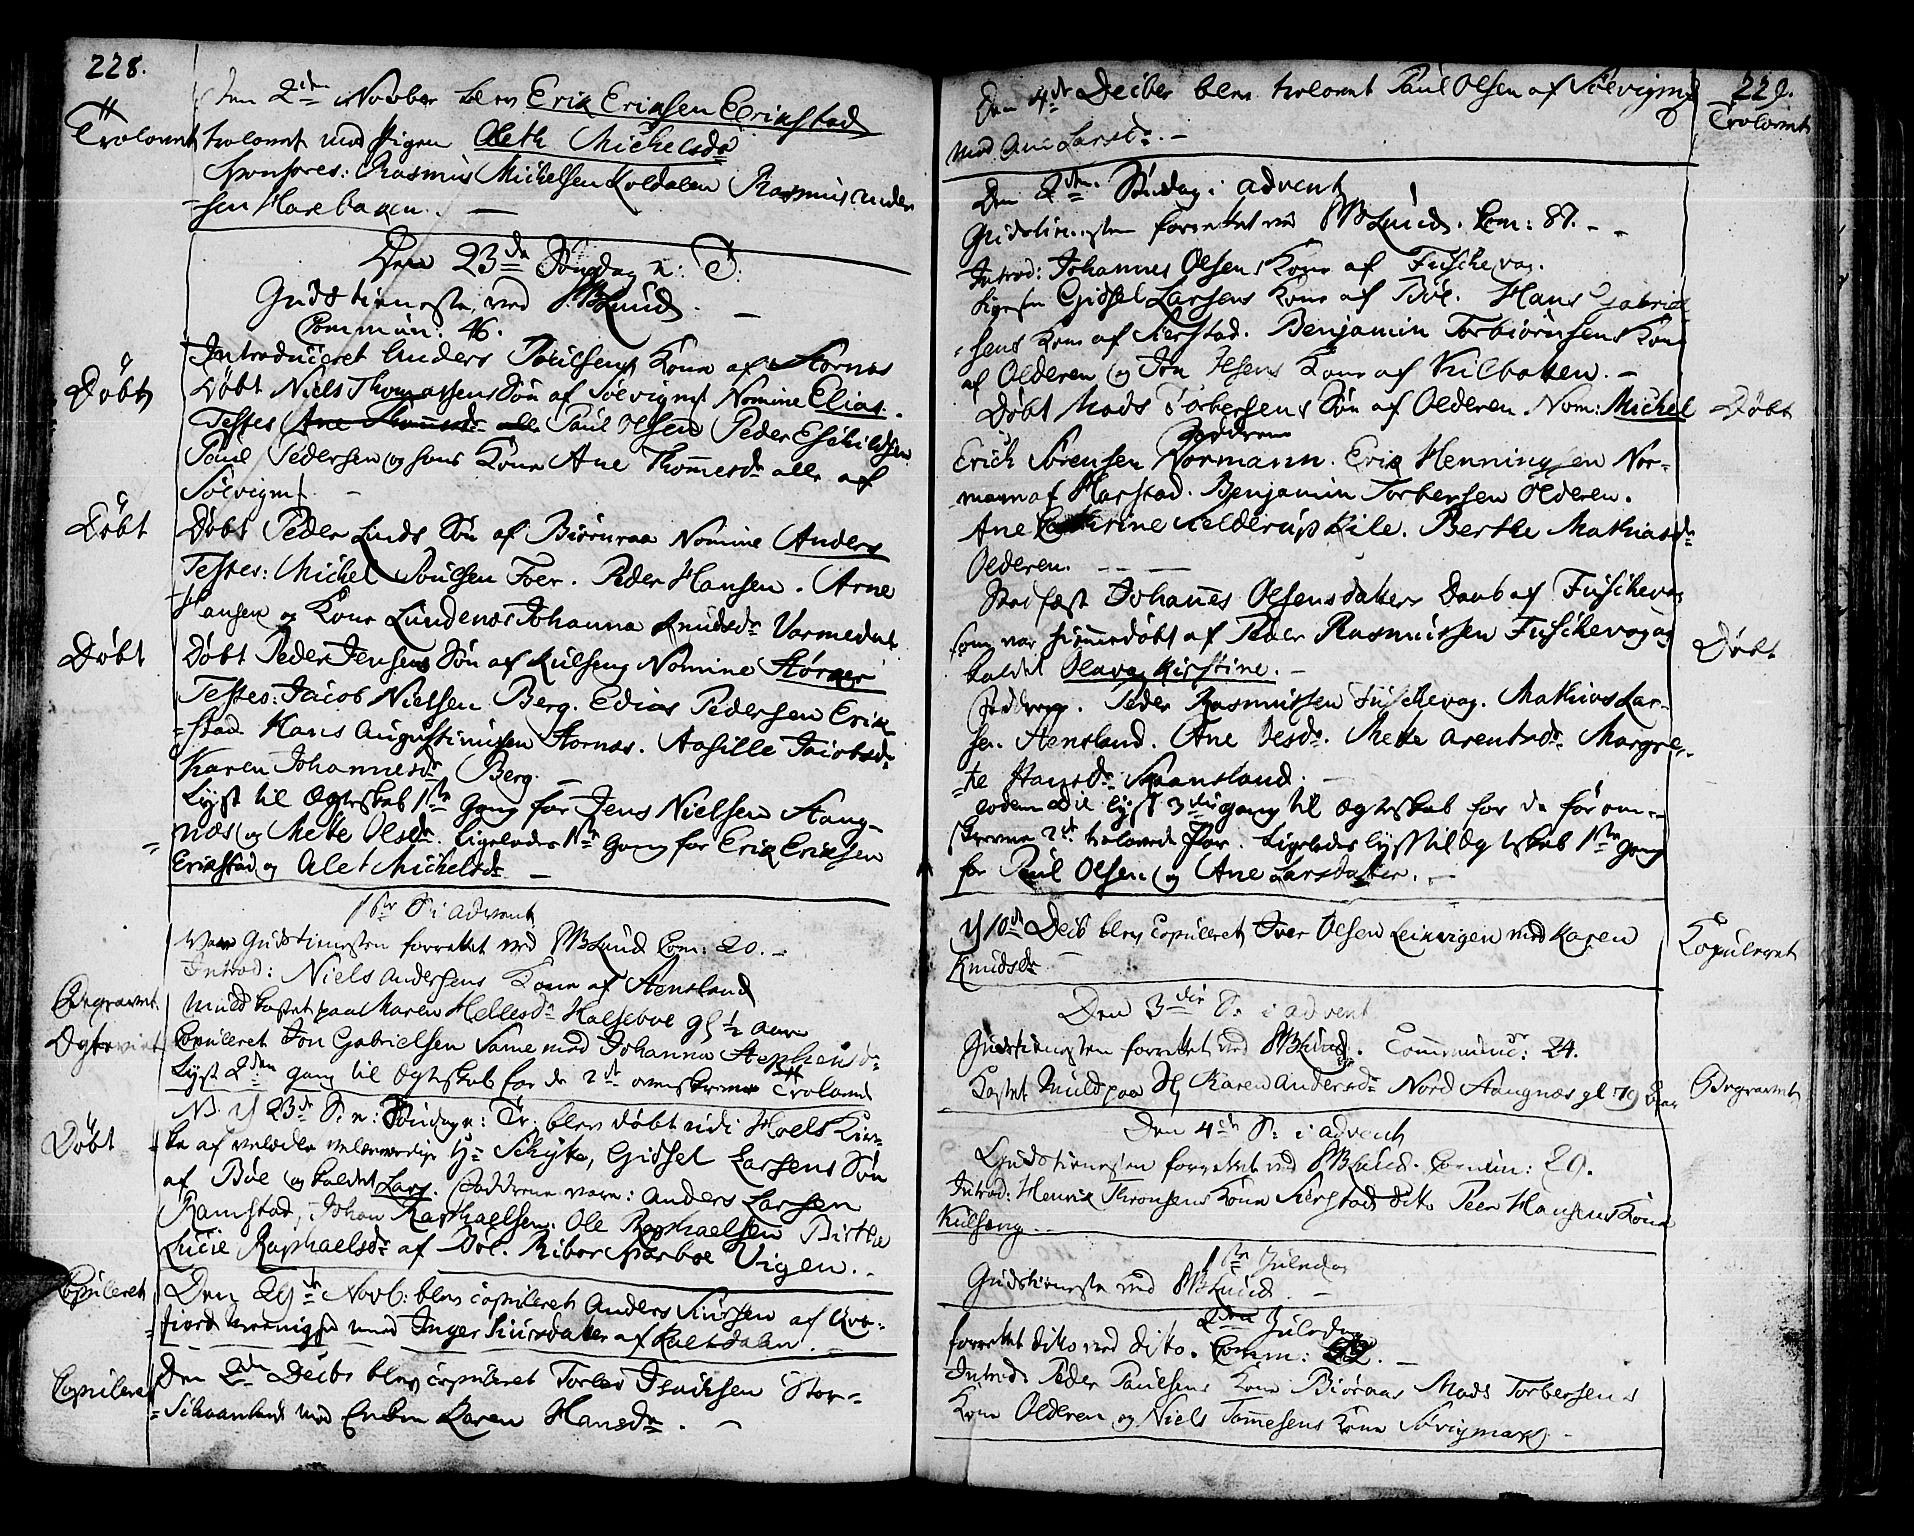 228.
Den 2den Novber blev Erik Eriksen Erikstad
Trolovet trolovet med Pigen Aleth Michelsdr
Sponsores: Rasmus Michelsen Koldalen Rasmus Ander
=sen Harebaken. —
Den 23de Søndag n: T:
Gudstieneste ved PBLund. —
Commun: 46.
Introduceret Anders Poulsens Kone af Stornas
Døbt Døbt Niels Thomassens Søn af Søevigm Nomine Elias.
Testes Ane Thommesdr alle Paul Olsen Peder Eschildsen
Paul Pedersen og hans Kone Ane Thommesdr alle af
Søevigm. —
Døbt Døbt Peder Linds Søn af Biørnraa Nomine Anders
Testes: Michel Poulsen Foer. Peder Hansen. Arne
Hansen og Kone Lundenes Johanna Knudsdr Varmedal
Døbt Døbt Peder Jensens Søn af Kulseng Nomine Størker
Testes: Jacob Nielsen Berg. Edias Pedersen Erik
=stad. Hans Augustinussen Stornas. Aasille Jacobsdr
Karen Johannesdr Berg. —
Lyst til Ægteskab 1ste Gang for Jens Nielsen Stang-
=næs og Mette Olsdr. Ligeledes 1ste Gang for Erik Eriksen
Erikstad og Alet Michelsdr —
1ste S. i Advent
Var Gudstienesten forrettet ved PBLund Com: 20. —
Introd: Niels Andersens Kone af Stensland
Begravet Muld kastet paa Maren Hellesdr Halseboe gl ½ Aar
Ægtevict Copuleret Jon Gabrielsen Same med Johanna Stephensdr
Lyst 2den gang til Ægteskab for de 2de ovenskrevne Trolovede
NB. d 23de S. n: Søndag n: Tr: blev døbt udi Hoels Kir=
Døbt ke af velædle velærværdige Hr Schytte, Gidsel Larsens Søn
af Bøe og kaldet Lars. Faddrene vare: Anders Larsen
Ramstad, Johan Raphaelsen. Ole Raphaelsen Birthe
Lucie Raphaelsdr af Bøe. Ribor Parboe Vigen. —
Copuleret Den 29de Novb: blev copuleret Anders Siursen af Qvæ=
=fiord Præstegield med Inger Siursdatter af Kaltdalen. —
Copuleret Den 2den Decbr blev copuleret Torlev Isaksen Stor=
=Schaanland med Enken Karen Hansdr. —
229.
Den 4de Decber blev trolovet Paul Olsen af Søevigm Trolovet
med Ane Larsdr. —
Den 2den Søndag i Advent
Gudstienesten forrettet ved PBLund. Com: 87. —
Introd: Johannes Olsens Kone af Fuschevog.
Ligesaa Gidsel Larsens Kone af Bøe. Hans Gabriel
=sens Kone af Sierstad. Benjamin Torbiørnsens Kone
af Olderen og Jon Ilsens Kone af Kilbotten. —
Døbt Mads Torbersens Søn af Olderen. Nom: Michel Døbt
Faddrene
Erich Sørensen Normann. Erik Henningsen Nor=
mann af Harstad. Benjamin Torbersen Olderen.
Ane Cathrine Kelderup Kile. Berthe Mathiasdr
Olderen. — — —
Stadfæst Johanes Olsens daatters Daab af Fuschevog
som var hiemmedøbt af Peder Rasmussen Fuschevog og Døbt
kaldet Olava Kirstine. —
Faddrene. Peder Rasmussen Fuschevog. Mathias Lar=
sen Stensland. Ane Olsdr. Mette Arentsdr. Margre=
=te Hansdr Skaansland. —
eodem die lyst 3die gang til Ægteskab for de forom-
skrevne 2de trolovede Par. Ligeledes lyst til Ægteskab 1ste gang
for Paul Olsen og Ane Larsdatter. —
d 10de Decb blev copuleret Iver Olsen Leikvigen med Karen Kopuleret
Knudsdr —
Den 3die S. i Advent
Gudstienesten forrettet ved PBLund. Communic: 24.
Kastet Muld paa Karen Andersdr Nord Stangnæs gl 79 Aar Begravet
Den 4de S. i Advent
Gudstienesten forrettet ved PBLund. Comun: 20.
Introd: Henrik Thronsens Kone Sierstad dito Peer Hansens Kone
Kulseng —
1ste Juledag
Gudstieneste ved PBLund. —
2den Juledag
forrettet dito ved dito. Comm: 52. —
Introd: Peder Paulsens Kone Biøraa Mads Torbersens
Kone Olderen og Niels Tommesens Kone Søvigmark. —